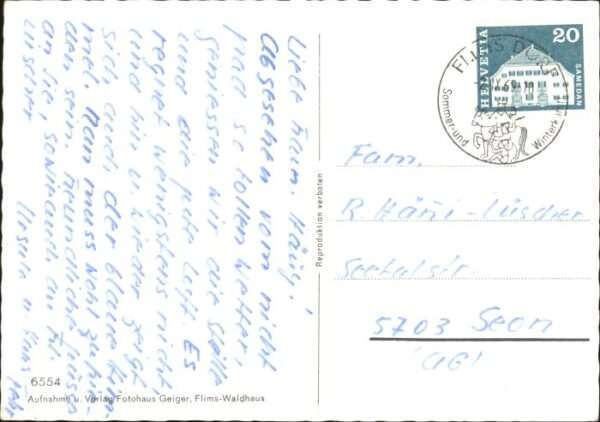 Liebe Fam. Häni!
Abgesehen vom nicht
grad so tollen Wetter,
geniessen wir die Stille
und die gute Luft. Es
regnet wenigstens nicht
und hin u. wieder zeigt
sich auch der blaue Him-
mel. Man muss wohl zufrie-
den sein. Freundliche Grüsse
an Sie
Ursula u. Hans
6554
Aufnahme u. Verlag Fotohaus Geiger, Flims-Waldhaus
Reproduktion verboten
HELVETIA
20
SAMEDAN
FLIMS DORF
Sommer-und
Winterkurort
Fam.
R. Häni-Lüscher
Seetalstr.
5703 Seon
(AG)